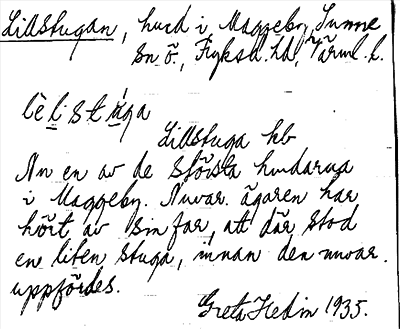 Lillstugan, hmd i Maggeby, Sunne
sn. ö., Fryksd. hd, Värml. l.
lèl stúga
Lillstuga hb
Nu en av de största hmdarna
i Maggeby. Nuvar. ägaren har
hört av sin far, att där stod
en liten stuga, innan den nuvar.
uppfördes.
Greta Hedin 1935.